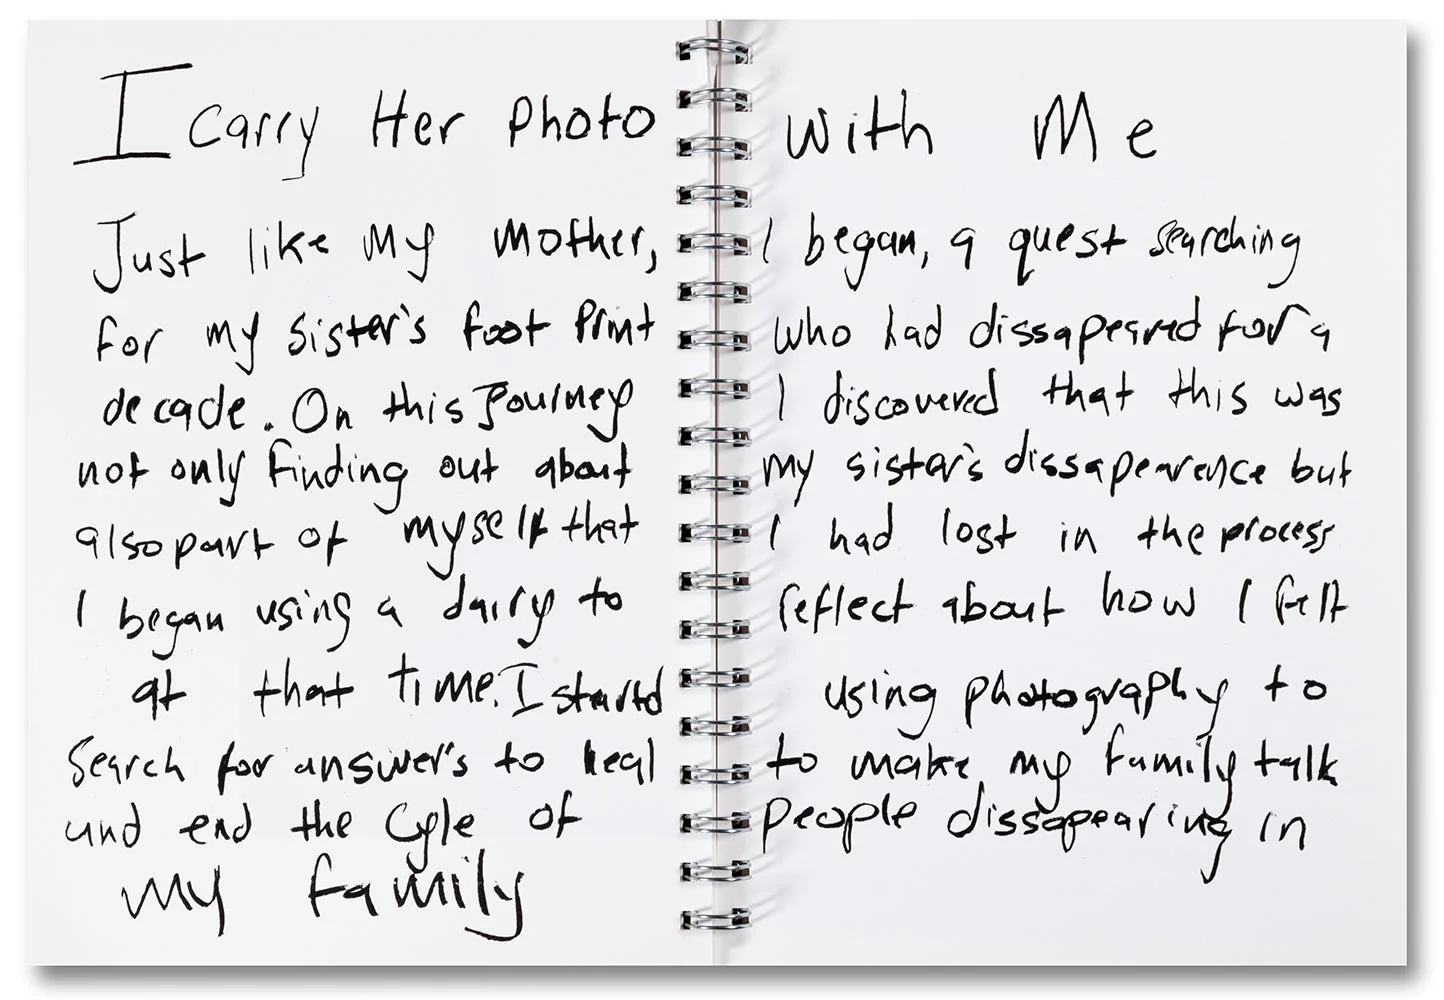 I Carry Her Photo With Me
Just like My Mother, I began, a quest searching
for my sister's foot Print who had dissapeared for a
decade. On this Journey I discovered that this was
not only finding out about my sister's dissapearence but
also part of myself that I had lost in the process
I began using a dairy to reflect about how I felt
at that Time. I started using photography to
Search for answer's to heal to make my family talk
and end the Cyle of People dissapearing in
My family